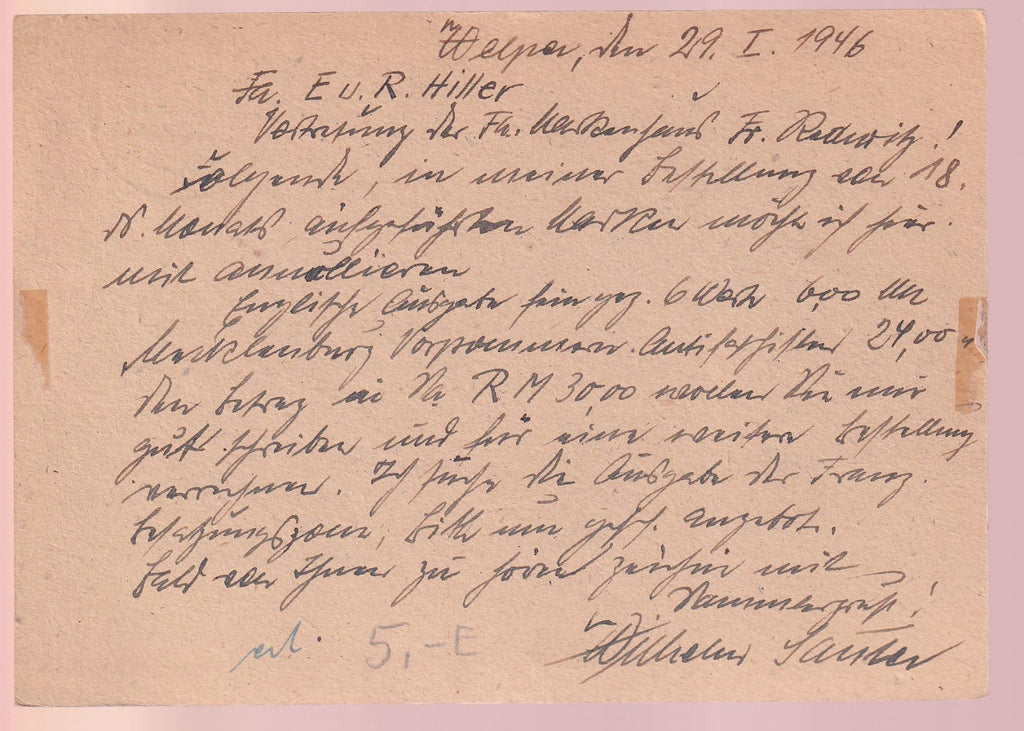 Welper, den 29. I. 1946
Fa. E u. R. Hiller
Vertretung der Fa. Markenhaus Fr. Redwitz!
Folgende, in meiner Bestellung vom 18.
ds. Monats aufgeführten Marken möchte ich hier-
mit annullieren
Englische Ausgabe fein gez. 6 Werte 6,00 RM
Mecklenburg Vorpommern. Antifaschisten 24,00 "
Den Betrag in RM 30,00 wollen Sie mir
gut schreiben und für eine weitere Bestellung
verrechnen. Ich suche die Ausgabe der Franz.
Besatzungszone, Bitte um gefl. Angebot.
Bald von Ihnen zu hören zeichne mit
Sammlergruß!
Wilhelm Sauter
erl. 5,-E